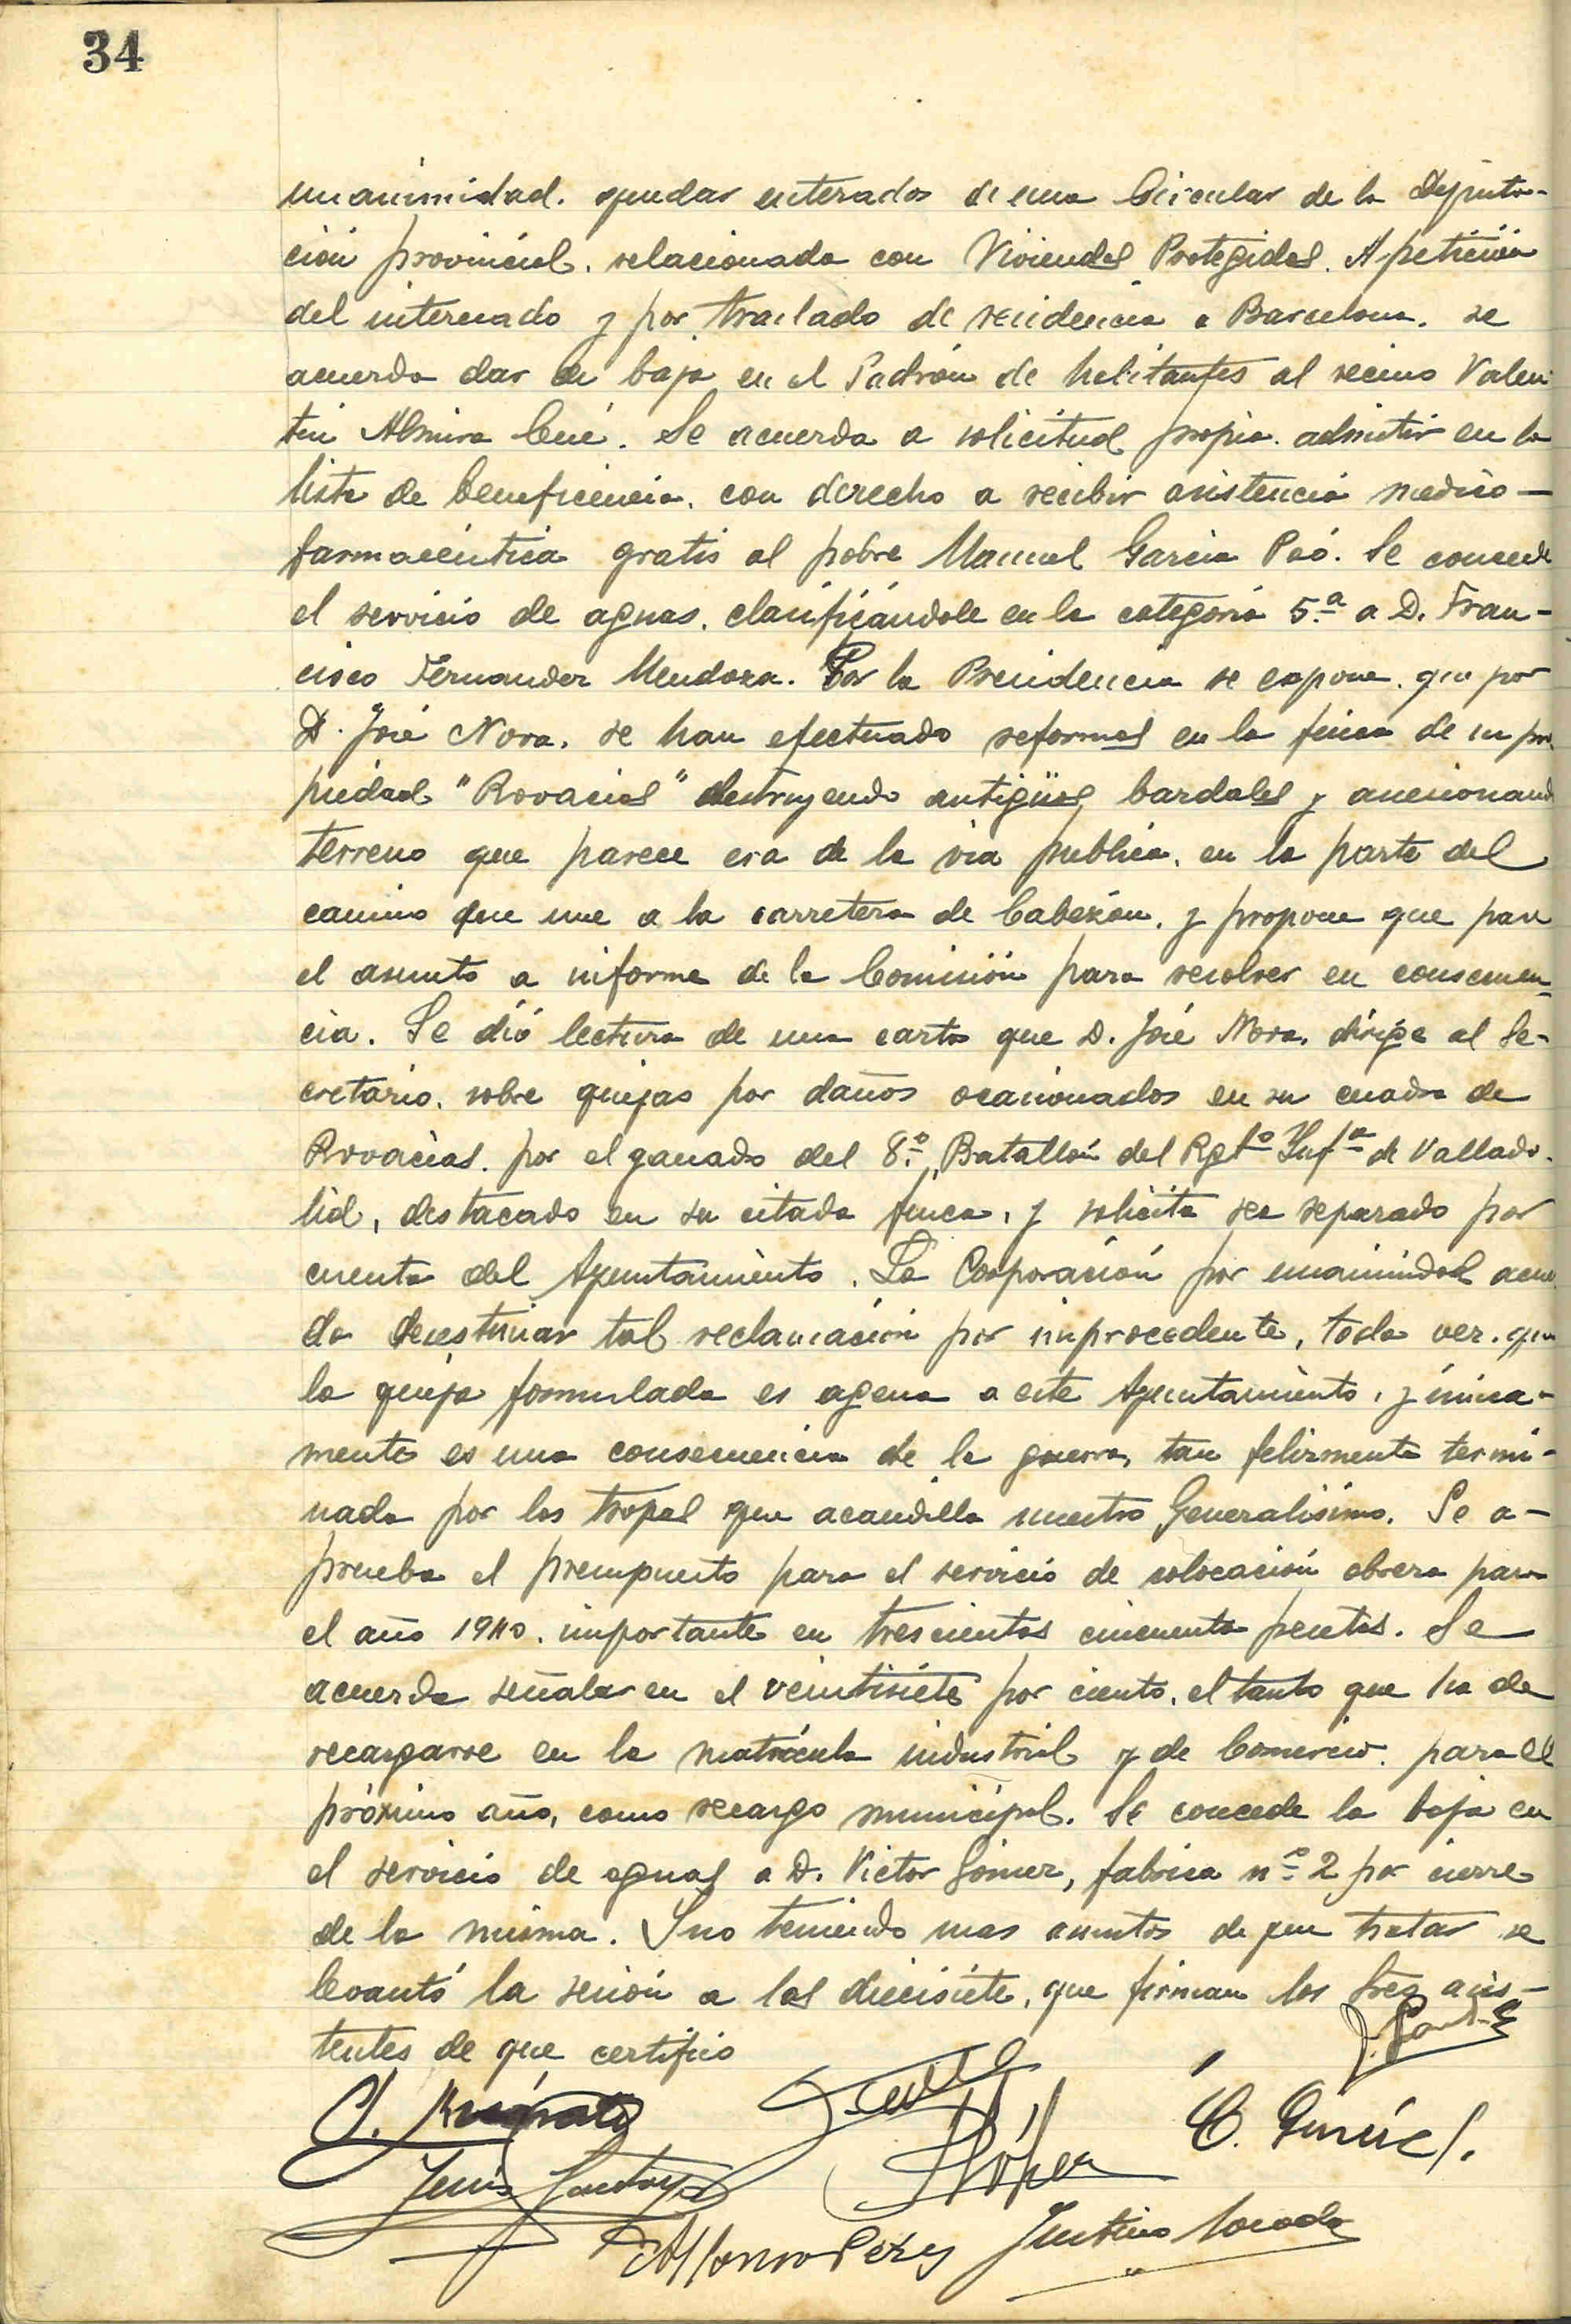 34
unanimidad. quedar enterados de una Circular de la Diputa-
ción provincial. relacionada con Viviendas Protegidas. A petición
del interesado y por traslado de residencia a Barcelona. se
acuerda dar de baja en el Padrón de habitantes al vecino Valen
tín Almira Cué. Se acuerda a solicitud propia. admitir en la
lista de beneficencia. con derecho a recibir asistencia médico-
farmacéutica gratis al pobre Manuel Garcia Peó. Se concede
el servicio de aguas. clasificándole en la categoría 5.ª a D. Fran-
cisco Fernandez Mendoza. Por la Presidencia se expone. que por
D. José Nora. se han efectuado reformas en la finca de su pro
piedad "Rovacias" destruyendo antigüos bardales y anexionand
terreno que parece era de la via publica. en la parte del
camino que une a la carretera de Cabezón. y propone que pase
el asunto a informe de la Comisión para resolver en consecuen-
cia. Se dió lectura de una carta que D. José Nora. dirige al Se-
cretario. sobre quejas por daños ocasionados en su cuadra de
Rovacias. por el ganado del 8.º Batallón del Rgtº Infª de Vallado-
lid, destacado en su citada finca, y solicita sea reparado por
cuenta del Ayuntamiento. La Corporación por unanimidad acuer
da desestimar tal reclamación por improcedente, toda vez. que
la queja formulada es agena a este Ayuntamiento, y única-
mente es una consecuencia de la guerra, tan felizmente termi-
nada por las tropas que acaudilla nuestro Generalísimo. Se a-
prueba el presupuesto para el servicio de colocación obrera para
el año 1940. importante en trescientas cincuenta pesetas. Se
acuerda señalar en el veintisiete por ciento, el tanto que ha de
recargarse en la matrícula industrial y de Comercio. para el
próximo año, como recargo municipal. Se concede la baja en
el servicio de aguas a D. Victor Gómez, fabrica nº 2 por cierre
de la misma. Y no teniendo mas asuntos de que tratar se
levantó la sesión a las diecisiete, que firman los Sres asis-
tentes de que certifico
López
Jesús
Alfonso Pérez Justino Losada